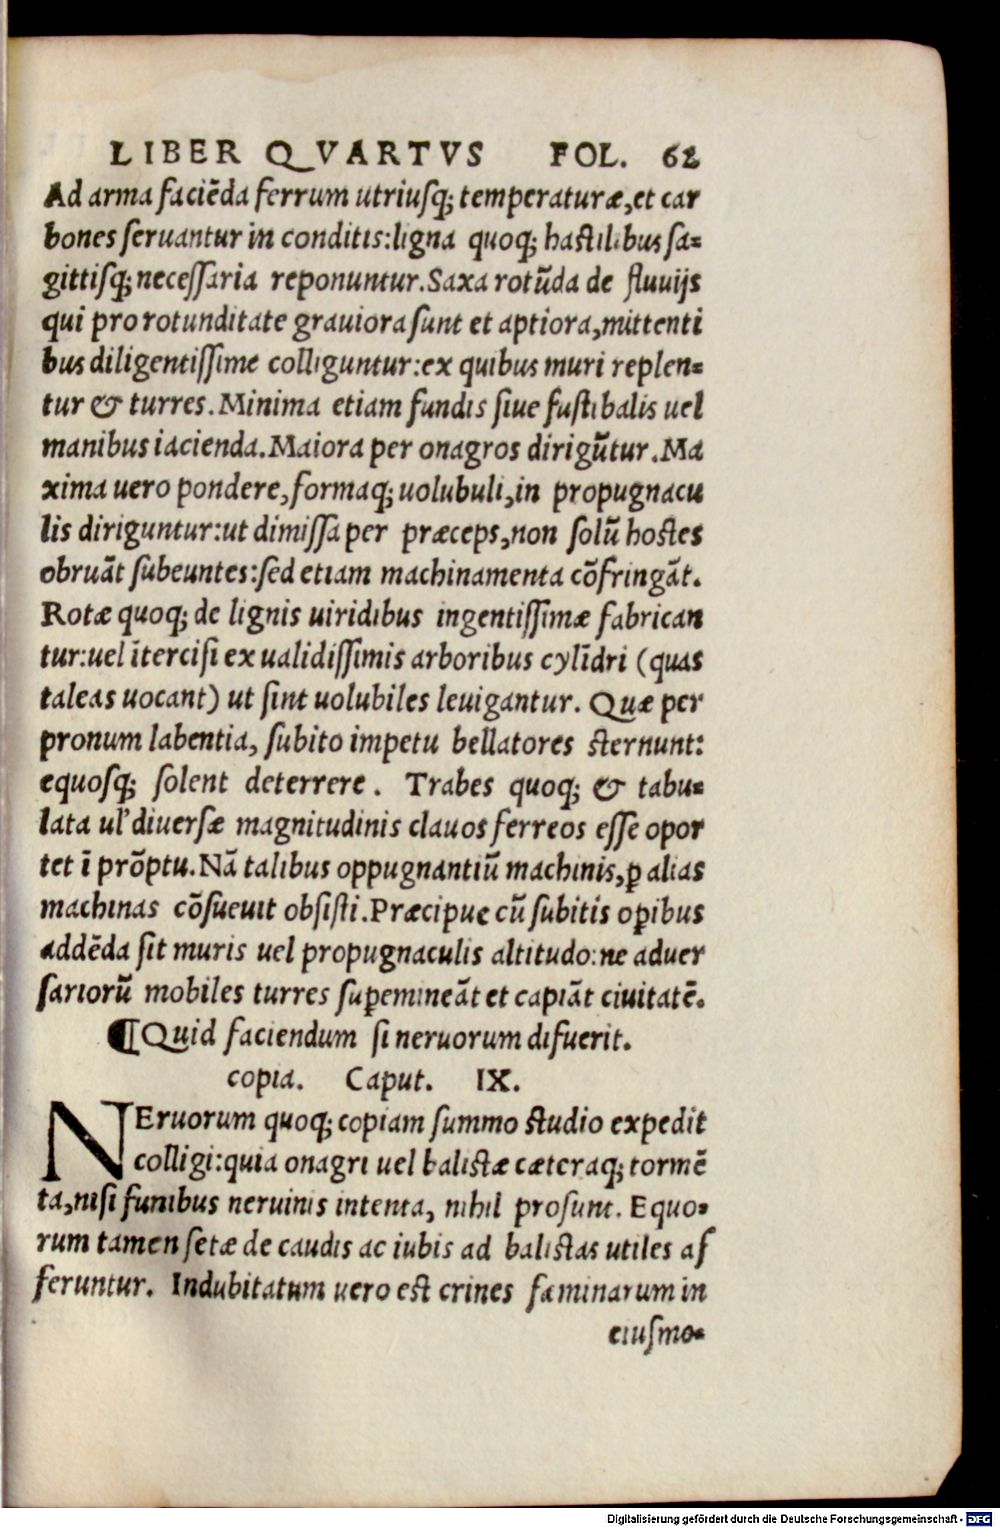 LIBER QVARTVS FOL. 62
Ad arma faciēda ferrum utriusq; temperaturæ,et car
bones seruantur in conditis:ligna quoq; hastilibus sa=
gittisq; necessaria reponuntur.Saxa rotūda de fluuijs
qui pro rotunditate grauiora sunt et aptiora,mittenti
bus diligentissime colliguntur:ex quibus muri replen=
tur & turres.Minima etiam fundis siue fustibalis uel
manibus iacienda.Maiora per onagros dirigūtur.Ma
xima uero pondere,formaq; uolubuli,in propugnacu
lis diriguntur:ut dimissa per præceps,non solū hostes
obruāt subeuntes:sed etiam machinamenta cōfringāt.
Rotæ quoq; de lignis uiridibus ingentissimæ fabrican
tur:uel ītercisi ex ualidissimis arboribus cylīdri (quas
taleas uocant) ut sint uolubiles leuigantur. Quæ per
pronum labentia, subito impetu bellatores sternunt:
equosq; solent deterrere. Trabes quoq; & tabu=
lata ul' diuersæ magnitudinis clauos ferreos esse opor
tet ī prōptu.Nā talibus oppugnantiū machinis,ꝑ alias
machinas cōsueuit obsisti.Præcipue cū subitis oꝑibus
addēda sit muris uel propugnaculis altitudo:ne aduer
sariorū mobiles turres suꝑemineāt et capiāt ciuitatē.
¶Quid faciendum si neruorum difuerit.
copia. Caput. IX.
NEruorum quoq; copiam summo studio expedit
colligi:quia onagri uel balistæ cæteraq; tormē
ta,nisi funibus neruinis intenta, nihil prosunt. Equo=
rum tamen setæ de caudis ac iubis ad balistas utiles as
feruntur. Indubitatum uero est crines fæminarum in
eiusmo=
Digitalisierung gefördert durch die Deutsche Forschungsgemeinschaft - DFG